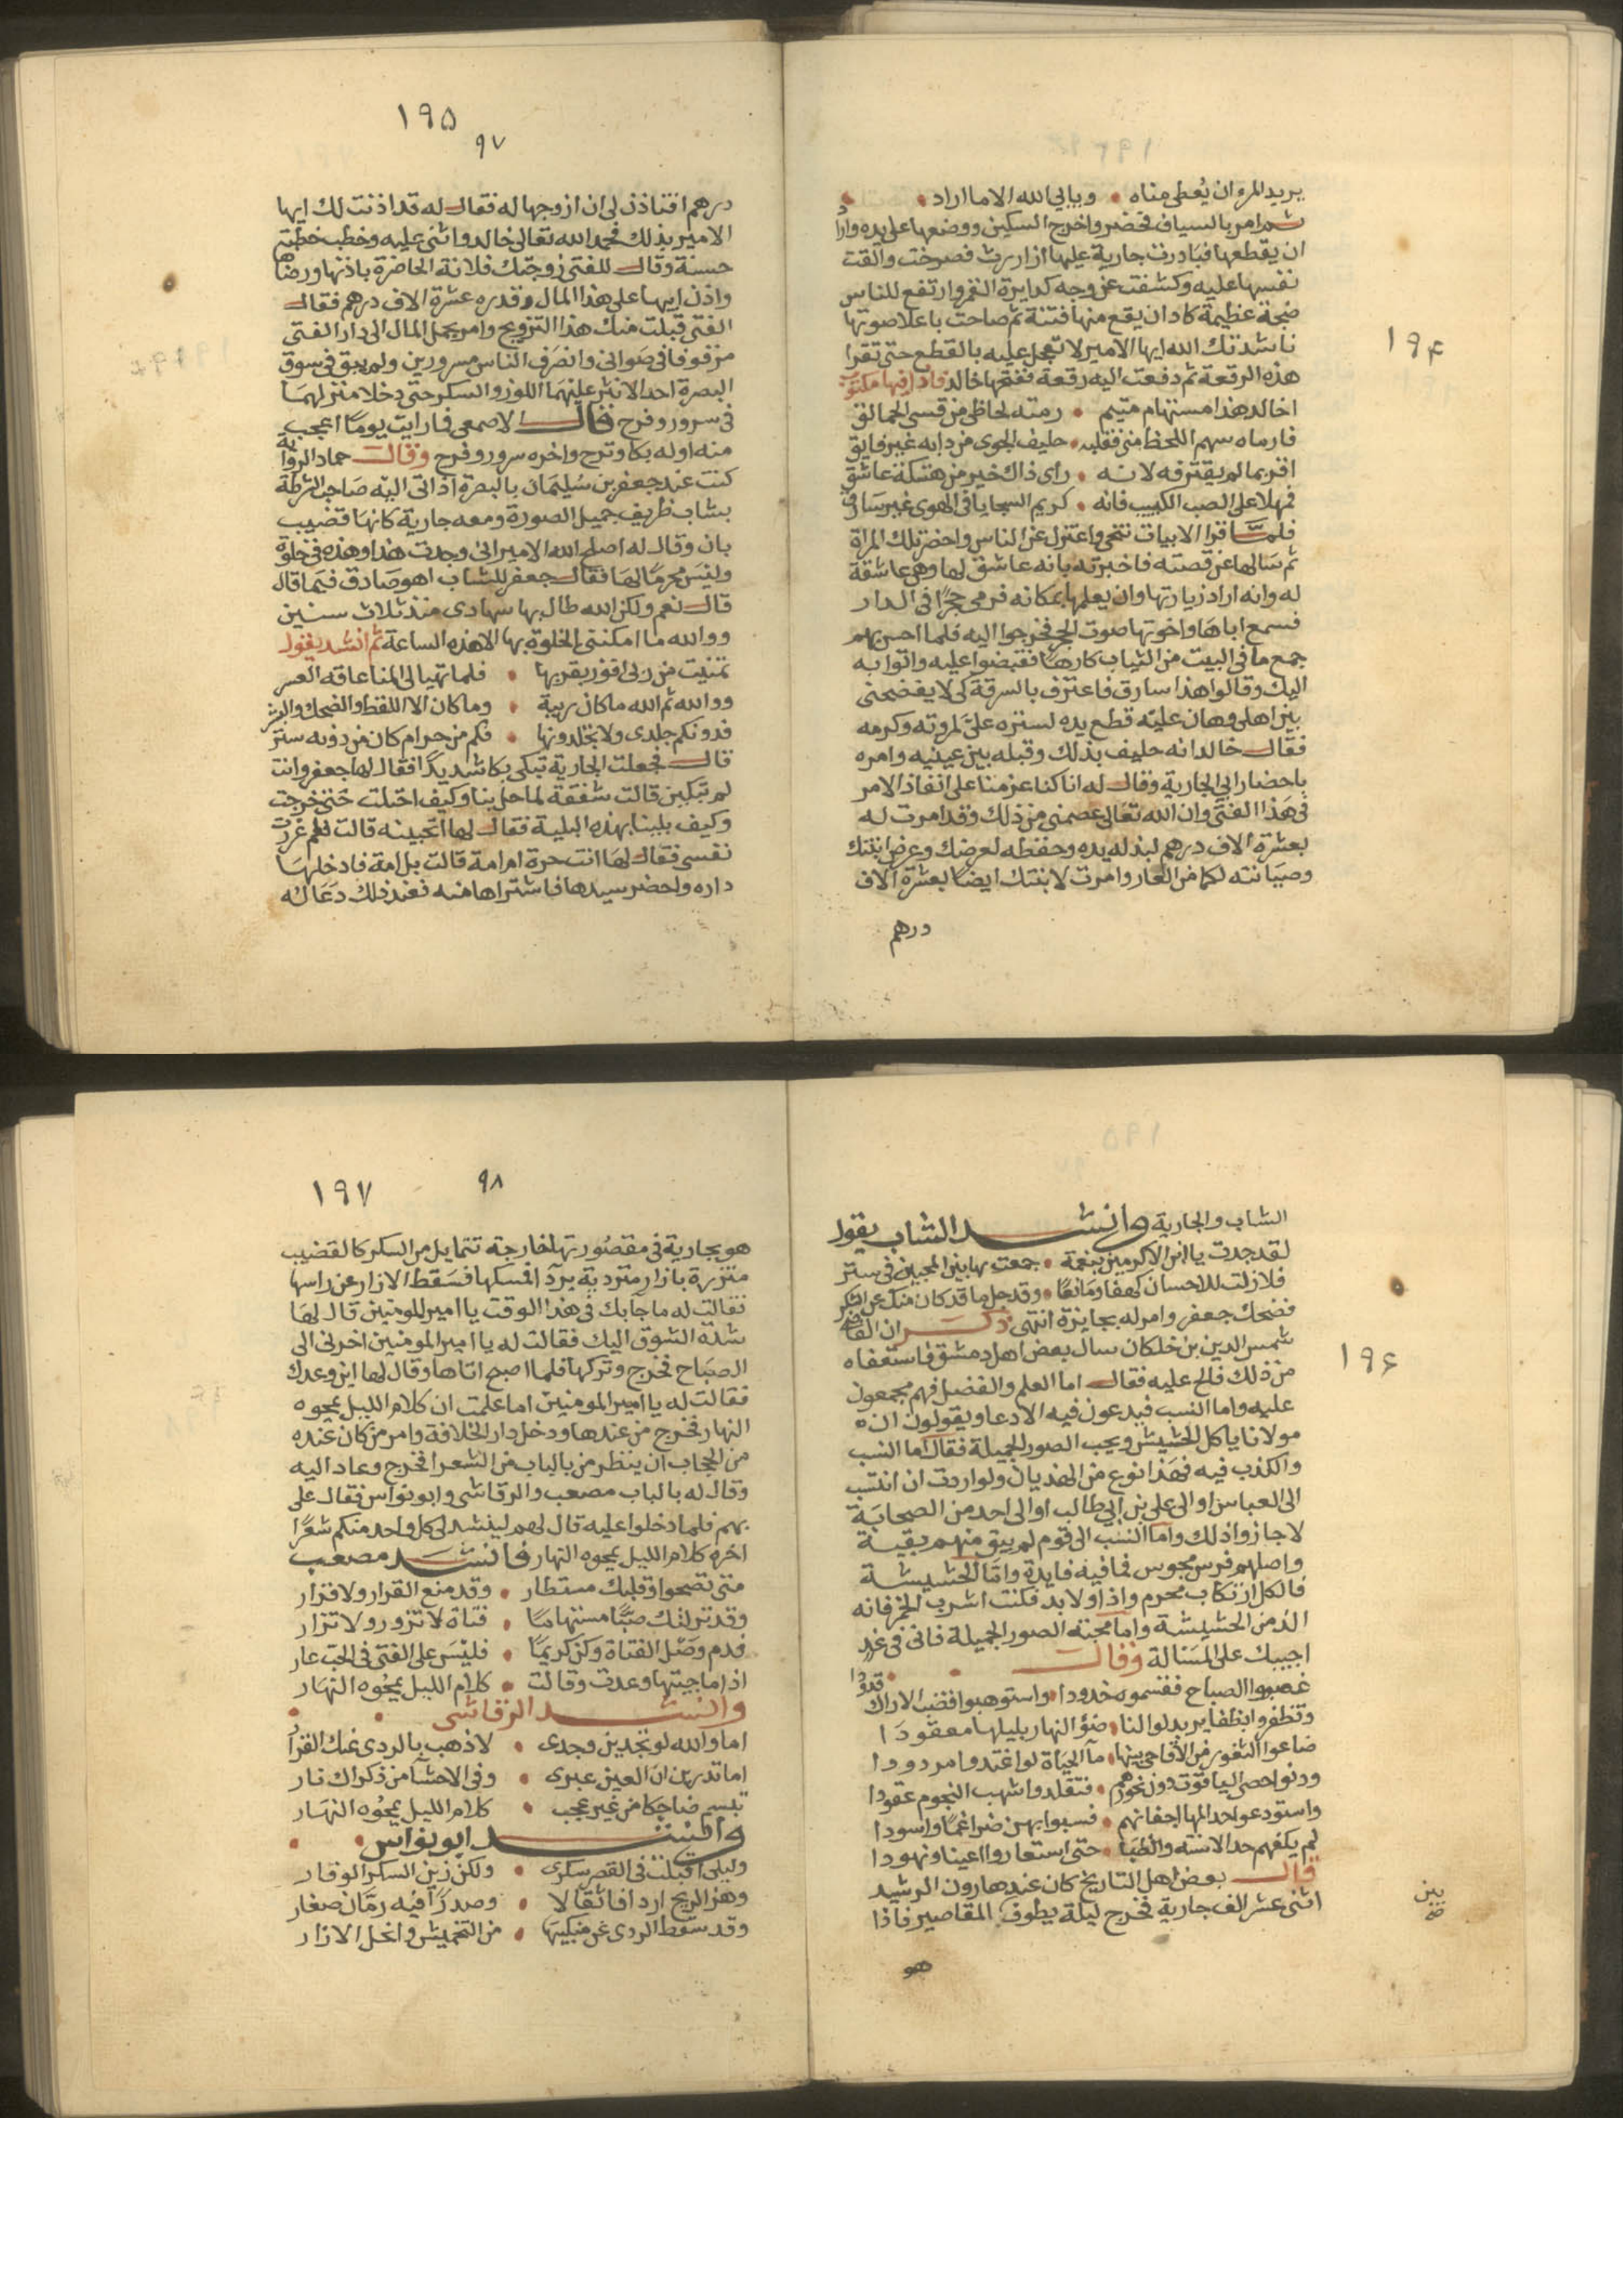 ١٩۴
يريد المرو ان يُعطى مناه • ويابى الله الا ما اراد •
ثم امر بالسياف فحضر واخرج السكين ووضعها على يده واراد
ان يقطعها فبادرت جارية عليها ازار رث فصرخت والقت
نفسها عليه وكشفت عن وجه كدايرة القمر وارتفع للناس
ضجة عظيمة كاد ان يقع منها فتنة ثم صاحت باعلا صوتها
ناشدتك الله ايها الامير لا تعجل عليه بالقطع حتى تقرا
هذه الرقعة ثم دفعت اليه رقعة ففتحها خالد فاذا فيها مكتوب
اخالد هذا مستهام متيم • رمته لحاظى من قسى الحمالق
فارماه سهم اللحظ منى فقلبه • حليف الجوى من دايه غير فايق
اقر بما لم يقترفه لانه • راى ذاك خير من هتكة عاشق
فمهلا على الصب الكييب فانه • كريم السجايا فى الهوى غير سارق
فلمّا قرا الابيات تنحى واعتزل عن الناس واحضر تلك المراة
ثم سالها عن قصته فاخبرته بانه عاشق لها وهى عاشقة
له وانه اراد زيارتها وان يعلمها بمكانه فرمى حجرًا فى الدار
فسمع اباها واخوتها صوت الحجر فخرجوا اليه فلما احس بهم
جمع ما فى البيت من الثياب كارها فقبضوا عليه واتوا به
اليك وقالوا هذا سارق فاعترف بالسرقة كى لا يفضحنى
بين اهلى وهان عليّه قطع يده لستره علىّ لمروته وكرمه
فقال خالد انه حليف بذلك وقبله بين عينيه وامره
باحضار ابى الجارية وقال له انا كنا عزمنا على انفاذ الامر
فى هذا الفتى وان الله تعالى عصمنى من ذلك وقد امرت له
بعشرة الاف درهم لبذله يده وحفظه لعرضك وعرض ابنتك
وصيانته لكما من العار وامرت لابنتك ايضًا بعشرة الاف
درهم
١٩۵
٩٧
درهم افتاذن لى ان ازوجها له فقال له قد اذنت لك ايها
الامير بذلك فحمد الله تعالى خالد واثنى عليه وخطب خطبة
حسنة وقال للفتى زوجتك فلانة الحاضرة باذنها ورضاها
واذن ابيها على هذا المال وقدره عشرة الاف درهم فقال
الفتى قبلت منك هذا التزويج وامر بحمل المال الى دار الفتى
مزفوفا فى صوانى وانصرف الناس مسرورين ولم يبق فى سوق
البصرة احد الا نثر عليهما اللوز والسكر حتى دخلا منزلهما
فى سرور وفرح قال الاصمعى فما رايت يومًا اعجب
منه اوله بكا وترح واخره سرور وفرح وقال حماد الرواية
كنت عند جعفر بن سليمان بالبصرة اذ اتى اليّه صاحب الشرطة
بشاب ظريف جميل الصورة ومعه جارية كانها قضيب
بان وقال له اصلح الله الامير انى وجدت هذا وهذه فى خلوة
وليس محرمًا لها فقال جعفر للشاب اهو صادق فيما قال
قال نعم ولكن الله طال بها سهادى منذ ثلاث سنين
ووالله ما امكنتى الخلوة بها الا هذه الساعة ثم انشد يقول
تمنيت من ربى افوز بقربها • فلما تهيا لى المنا عاقه العسر
ووالله ثم الله ما كان ريبة • وما كان الا اللفظ والضحك والبشر
فدونكم جلدى ولا تجلدونها • فكم من حرام كان من دونه ستر
قال فجعلت الجارية تبكى بكا شديدًا فقال لها جعفر وانت
لم تبكين قالت شفقة لما حل بنا وكيف احتلت حتى خرجت
وكيف بلينا بهذه البلية فقال لها اتحبينه قالت فلم غررت
نفسى فقال لها انت حرة ام امة قالت بل امة فادخلها
داره واحضر سيدها فاشتراها منه فعند ذلك دعا له
١٩۶
الشاب والجارية وانشد الشاب يقول
لقد جدت يا ابن الاكرمين بنعمة • جمعت بها بين المحبين فى ستر
فلا زلت للاحسان كهفا ومانعًا • وقد جل ما قد كان منك عن الشكر
فضحك جعفر وامر له بجايزة انتهى ذكر ان القاضى
شمس الدين بن خلكان سال بعض اهل دمشق فاستعفاه
من ذلك فالح عليه فقال اما العلم والفضل فهم مجمعون
عليه واما النسب فيدعون فيه الادعا ويقولون ان
مولانا ياكل الحشيش ويحب الصور الجميلة فقال اما النسب
والكذب فيه فهذا نوع من الهذيان ولو اردت ان انتسب
الى العباس او الى على بن ابى طالب او الى احد من الصحابة
لاجازوا ذلك واما النسب الى قوم لم يبق منهم بقية
واصلهم فرس مجوس فما فيه فايدة وامّا الحشيشة
فالكل ارتكاب محرم واذا ولا بد فكنت اشرب الخمر فانه
الذ من الحشيشة واما محبته الصور الجميلة فانى فى غد
اجيبك على المسالة وقال
غصبوا الصباح فقسموه خدودا • واستوهبوا قضب الاراك قدودا
وتظفروا بظفاير بدلوا لنا • ضوُ النهار بليلها معقودا
ضاعوا الثغور من الأقاحى بينها • مآ الحياة لو اغتدوا مردودا
ودنوا حصى الياقوت دون نحورهم • فتقلدوا شهب النجوم عقودا
واستودعوا حد المها اجفانهم • فسبوا بهن ضراغمًا واسودا
لم يكفهم حد الاسنه والظبا • حتى استعاروا اعينا ونهودا
قال بعض اهل التاريخ كان عند هارون الرشيد
اثنى عشر الف جارية فخرج ليلة يطوف المقاصير فاذا
بين
صح
هو
١٩٧
٩٨
هو بجارية فى مقصورتها خارجة تتمايل من السكر كالقضيب
متزرة بازار متردية بردآ فمسكها فسقط الازار عن راسها
فقالت له ما جا بك فى هذا الوقت يا امير المومنين قال لها
شدة الشوق اليك فقالت له يا امير المومنين اخرنى الى
الصباح فخرج وتركها فلما اصبح اتاها وقال لها اين وعدك
فقالت له يا امير المومنين اما علمت ان كلام الليل يمحوه
النهار فخرج من عندها ودخل دار الخلافة وامر من كان عنده
من الحجاب ان ينظر من بالباب من الشعرا فخرج وعاد اليه
وقال له بالباب مصعب والرقاشى وابو نواس فقال على
بهم فلما دخلوا عليه قال لهم لينشد لى كل واحد منكم شعرًا
اخره كلام الليل يمحوه النهار فانشد مصعب
متى تصحوا وقلبك مستطار • وقد منع القرار ولا قرار
وقد تركتك صبًّا مستهاما • فتاة لا تزور ولا تزار
فدم وصل الفتاة وكن كريمًا • فليس على الفتى فى الحب عار
اذا ما جيتها وعدت وقالت • كلام الليل يمحوه النهار
وانشد الرقاشى
اما والله لو تجدين وجدى • لاذهب بالردى عنك القرار
اما تدرين ان العين عبرى • وفى الاحشآ من ذكراك نار
تبسم ضاحكا من غير عجب • كلام الليل يمحوه النهار
وانشد ابو نواس
وليلى اقبلت فى القصر سكرى • ولكن زين السكر الوقار
وهز الريح اردافا ثقالا • وصدرًا فيه رمّان صغار
وقد سقط الردى عن منكبيها • من التخميش وانحل الازار